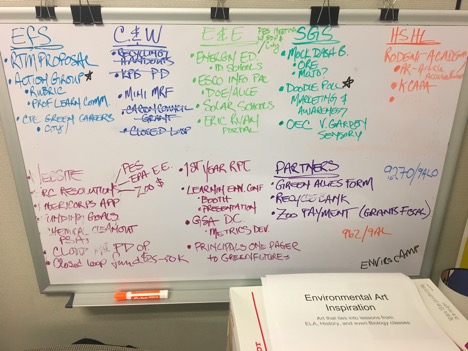 EFS
RTM PROPOSAL
ACTION GROUP
RUBRIC
PROF LEARN COMM.
CTE GREEN CAREERS
C & W
RECYCLING HANDOUTS
KPB PD
MINI MRF
CARTON COUNCIL
GRANT
CLOSED LOOP
E & E
ENERGY ED
IN SCHOOLS
ESCO INFO
DOE/ALICE
SOLAR SCHOOLS
ERIC RYAN
PORTAL
SGIS
MOCK DASH B.
ORE
MOJO?
DOODLE POLL
MARKETING &
AWARENESS?
OEC V. GARDEN
SENSORY
HSHL
RODENT ACADEMY
KCAPA
WEBSITE
RC RESOLUTIONS
PES
EPA E.E.
AMERICORPS APP
GOALS
CHEMICAL CLEANOUT
PSAs
PD OP
CLOSED LOOP
1ST YEAR RPT
LEARNING ENV. CONF
BOOTH
PRESENTATION
GSA DC
METRICS DEV.
PRINCIPALS ONE PAGER
TO GREEN FUTURES
PARTNERS
GREEN ACRES FORM
RECYCLE BANK
ZOO PAYMENT (GRANTS FISCAL)
9270/9AL0
962/9AL
ENVIROCAMP
Environmental Art
Inspiration
Art that ties into lessons from
ELA, History, and even Biology classes